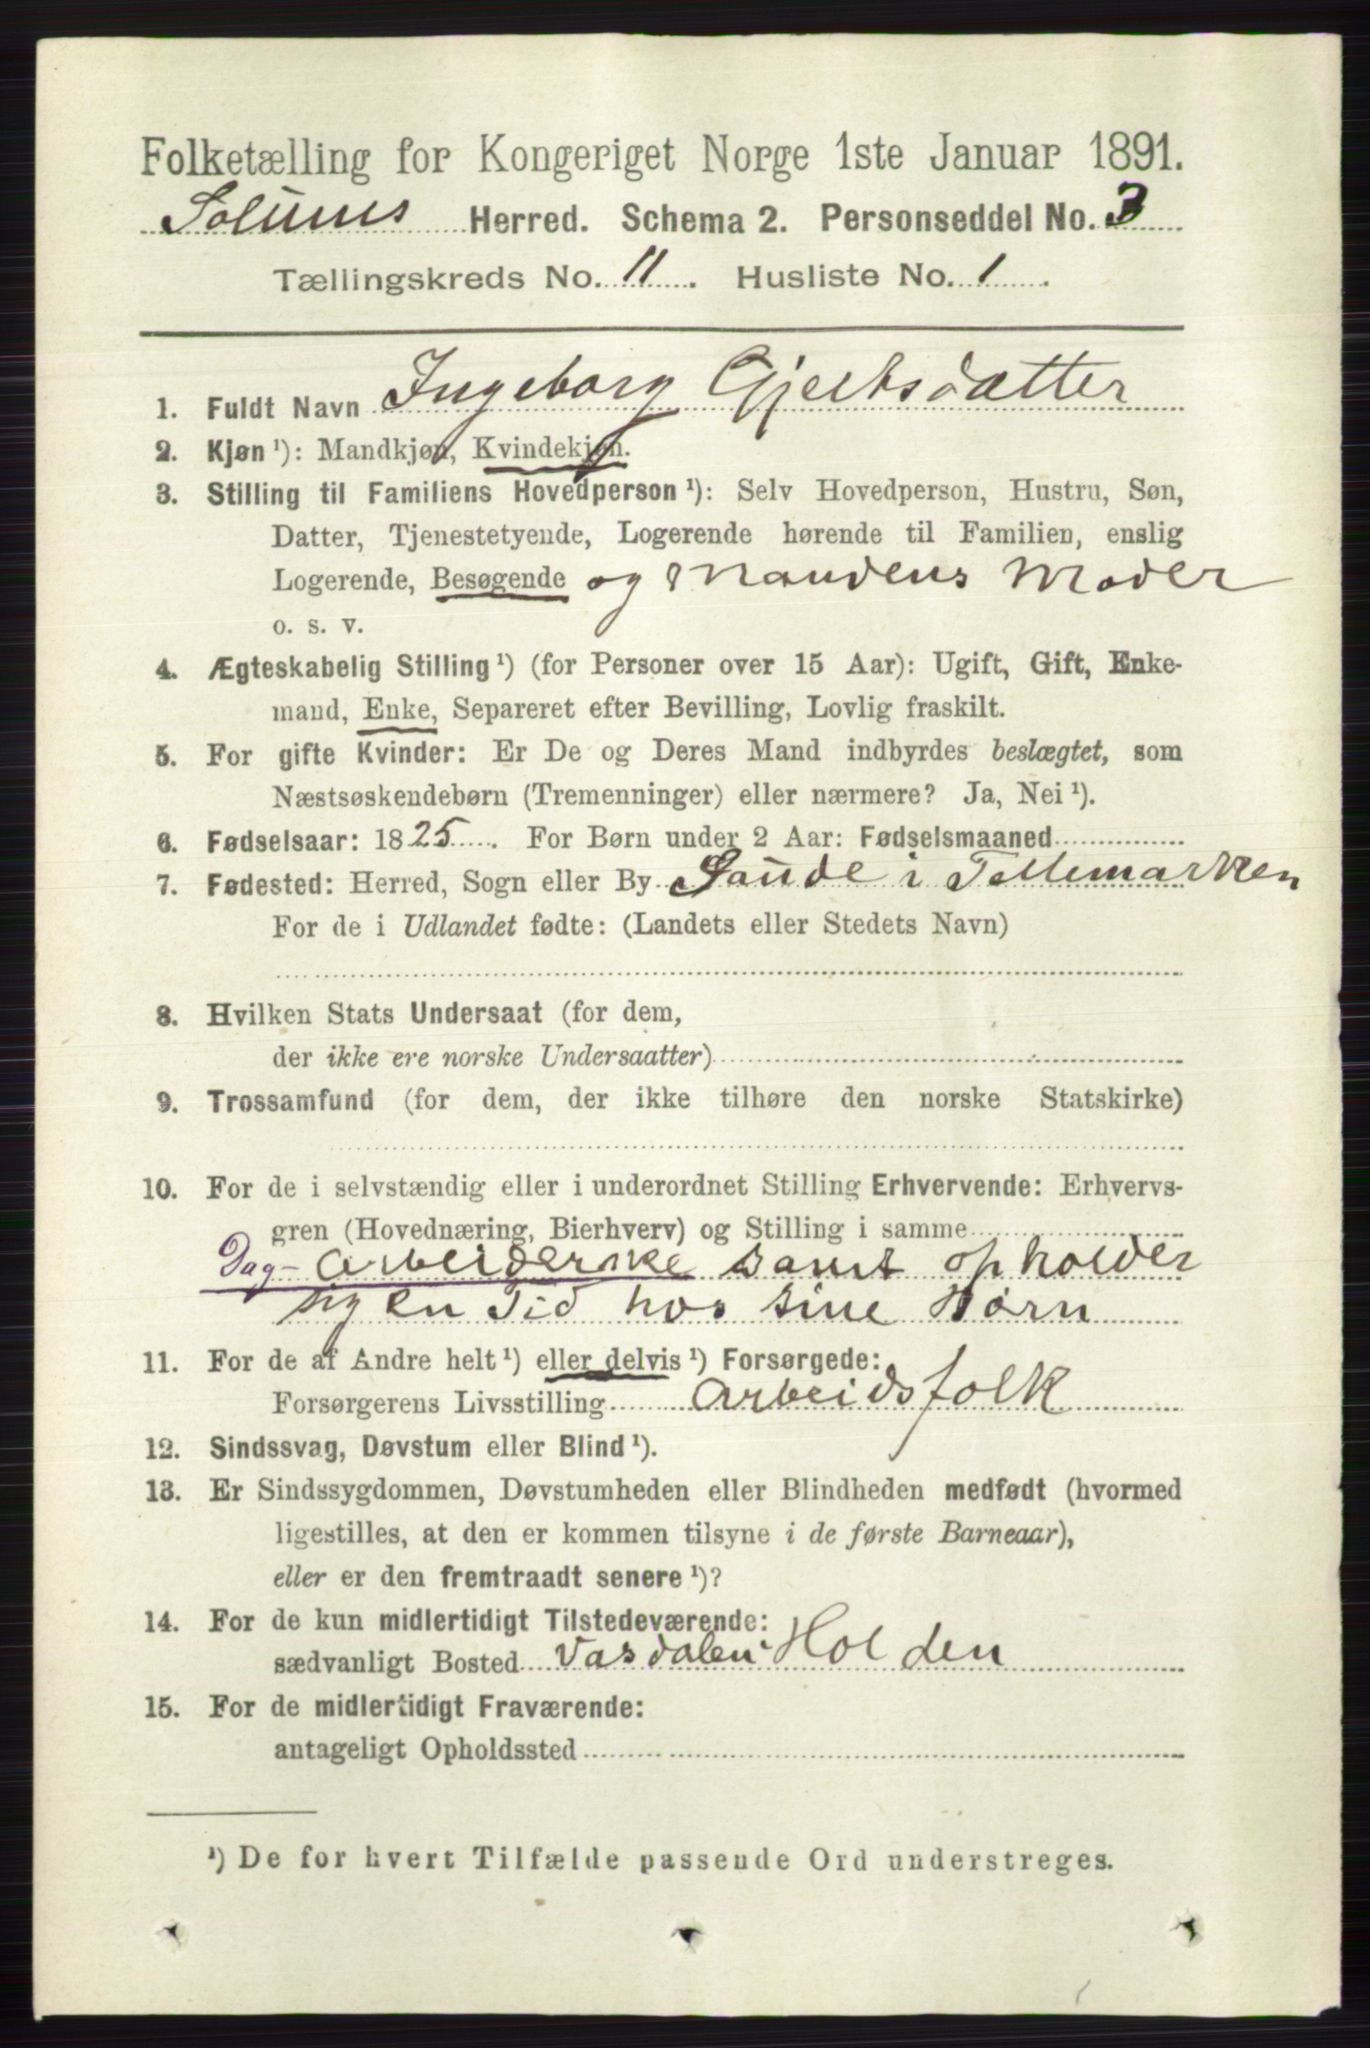 Folketælling for Kongeriget Norge 1ste Januar 1891.
Solums Herred. Schema 2. Personseddel No. 3
Tællingskreds No. 11. Husliste No. 1.
1. Fuldt Navn Ingeborg Gjertsdatter
2. Kjøn ¹): Mandkjøn, Kvindekjøn.
3. Stilling til Familiens Hovedperson ¹): Selv Hovedperson, Hustru, Søn,
Datter, Tjenestetyende, Logerende hørende til Familien, enslig
Logerende, Besøgende og Mandens Moder
o. s. v.
4. Ægteskabelig Stilling ¹) (for Personer over 15 Aar): Ugift, Gift, Enke-
mand, Enke, Separeret efter Bevilling, Lovlig fraskilt.
5. For gifte Kvinder: Er De og Deres Mand indbyrdes beslægtet, som
Næstsøskendebørn (Tremenninger) eller nærmere? Ja, Nei ¹).
6. Fødselsaar: 1825. For Børn under 2 Aar: Fødselsmaaned
7. Fødested: Herred, Sogn eller By Saude i Tellemarken
For de i Udlandet fødte: (Landets eller Stedets Navn)
8. Hvilken Stats Undersaat (for dem,
der ikke ere norske Undersaatter)
9. Trossamfund (for dem, der ikke tilhøre den norske Statskirke)
10. For de i selvstændig eller i underordnet Stilling Erhvervende: Erhvervs-
gren (Hovednæring, Bierhverv) og Stilling i samme
Dag- Arbeiderske samt opholder
sig en Tid hos sine Børn
11. For de af Andre helt ¹) eller delvis ¹) Forsørgede:
Forsørgerens Livsstilling Arbeidsfolk
12. Sindssvag, Døvstum eller Blind ¹).
13. Er Sindssygdommen, Døvstumheden eller Blindheden medfødt (hvormed
ligestilles, at den er kommen tilsyne i de første Barneaar),
eller er den fremtraadt senere ¹)?
14. For de kun midlertidigt Tilstedeværende:
sædvanligt Bosted Vasdalen Holden
15. For de midlertidigt Fraværende:
antageligt Opholdssted
¹) De for hvert Tilfælde passende Ord understreges.